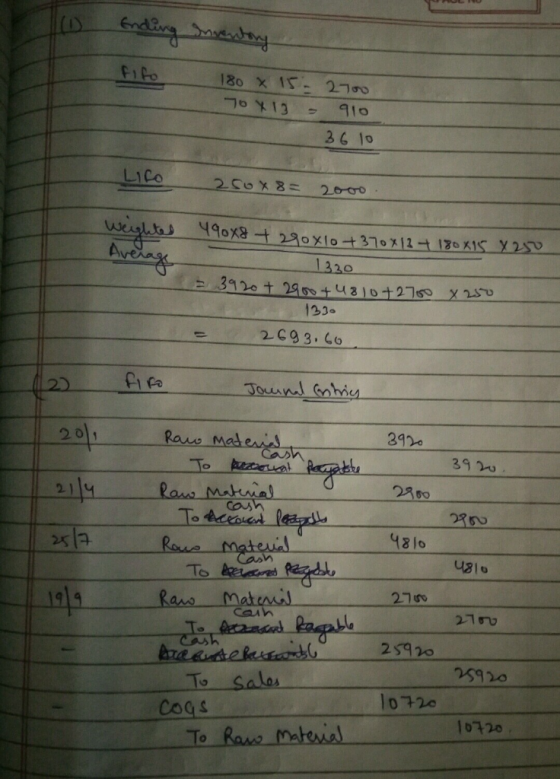 (1) Ending Inventory
FIFO 180 x 15 = 2700
70 x 13 = 910
3610
LIFO 250 x 8 = 2000.
Weighted Average 490x8 + 290x10 + 370x13 + 180x15 x 250
1330
= 3920 + 2900 + 4810 + 2700 x 250
1330
= 2693.60.
(2) FIFO Journal Entries
20/1 Raw Material 3920
To Account Payable Cash 3920.
21/4 Raw Material 2900
To Account Payable Cash 2900
25/7 Raw Material 4810
To Account Payable Cash 4810
19/9 Raw Material 2700
To Account Payable Cash 2700
- Cash 25920
To Sales 25920
- COGS 10720
To Raw Material 10720.